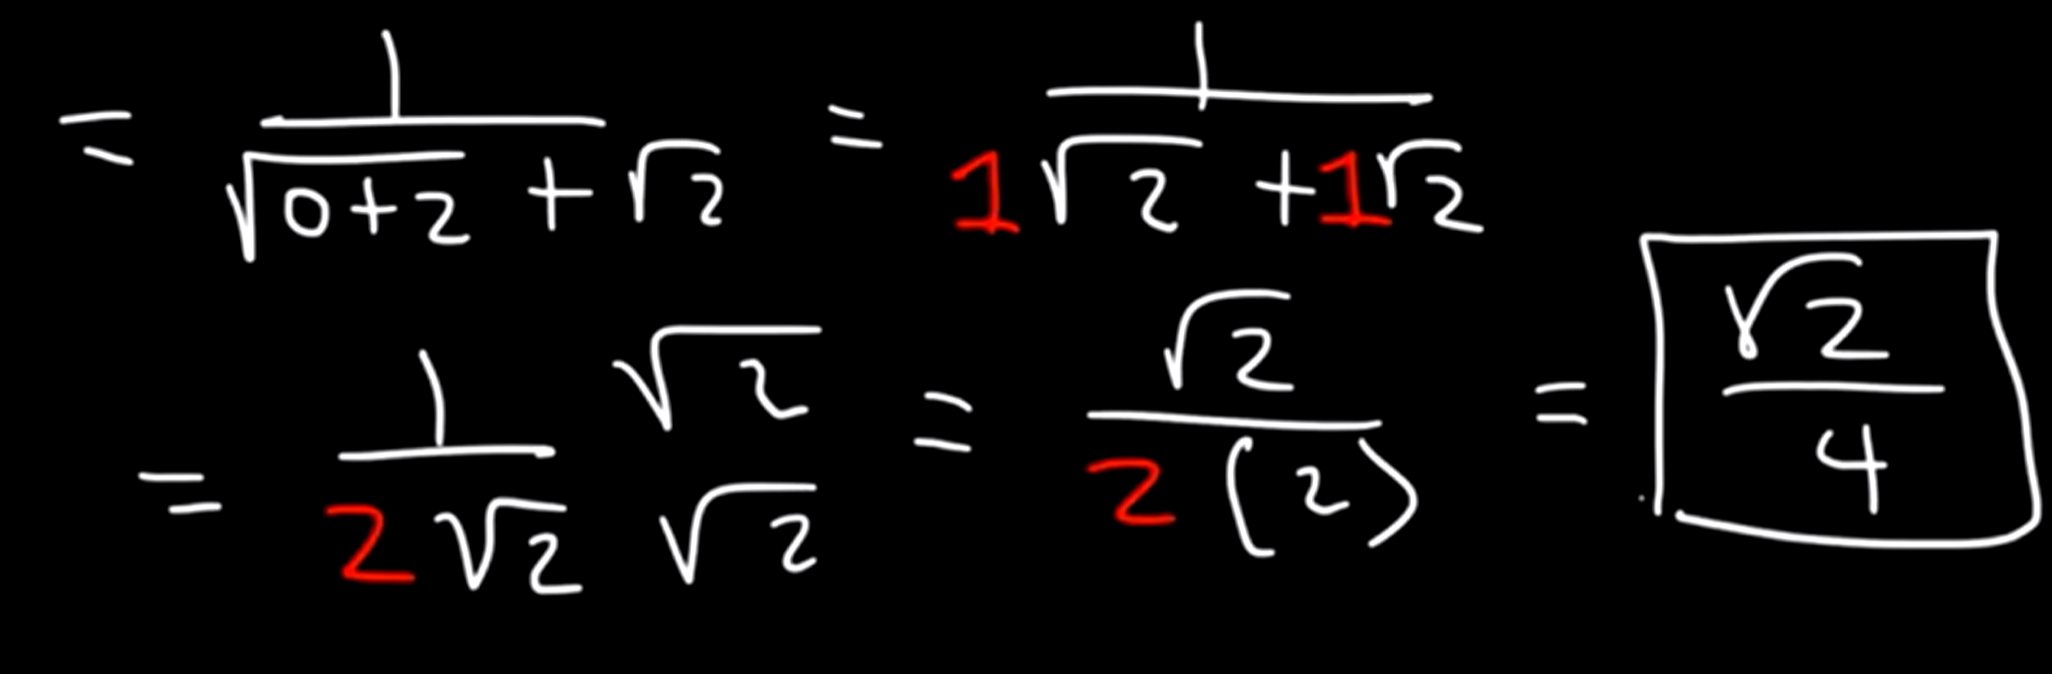 = 1/(√(0+2) + √2) = 1/(1√2 + 1√2)
= 1/(2√2) √2/√2 = √2/(2(2)) = √2/4